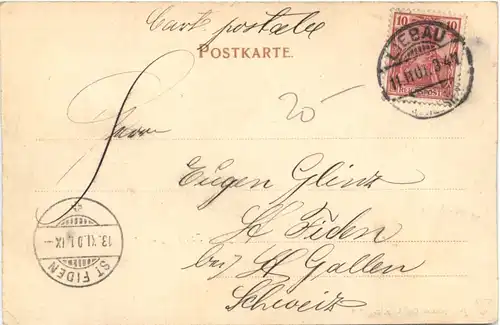 Cart postale
POSTKARTE.
10 10
LIEBAU
11.11.01. 3-4N
25
Herrn
Eugen Glinz
St Fiden
bei St Gallen
Schweiz
ST FIDEN
13.XI.01.IX-